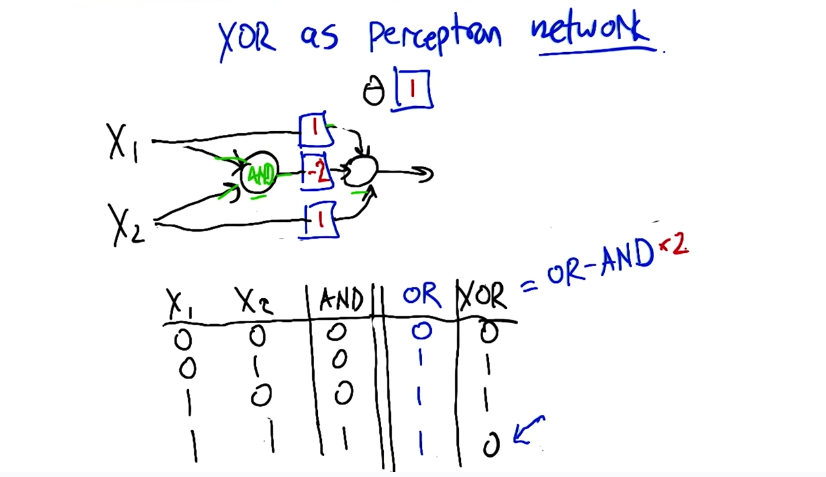 XOR as Perceptron network
θ 1
X1 1
AND -2
X2 1
= OR-AND*2
X1 X2 AND OR XOR
0 0 0 0 0
0 1 0 1 1
1 0 0 1 1
1 1 1 1 0